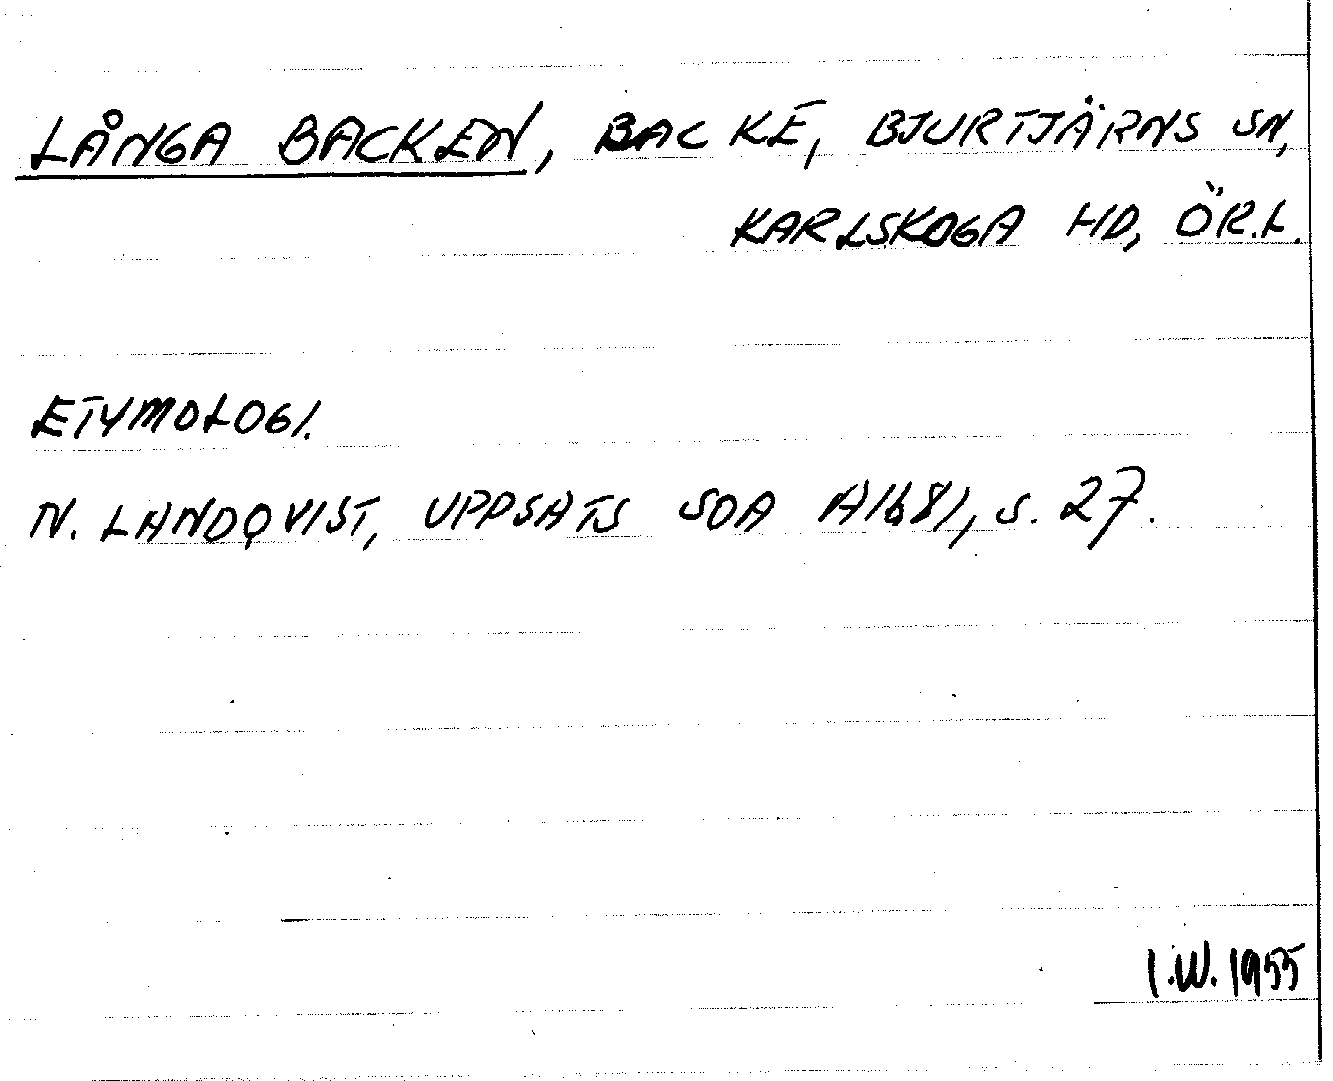 LÅNGA BACKEN, BACKE, BJURTJÄRNS SN,
KARLSKOGA HD, ÖR.L.
ETYMOLOGI.
N. LANDQVIST, UPPSATS SOA A1681, s. 27.
I.W. 1955